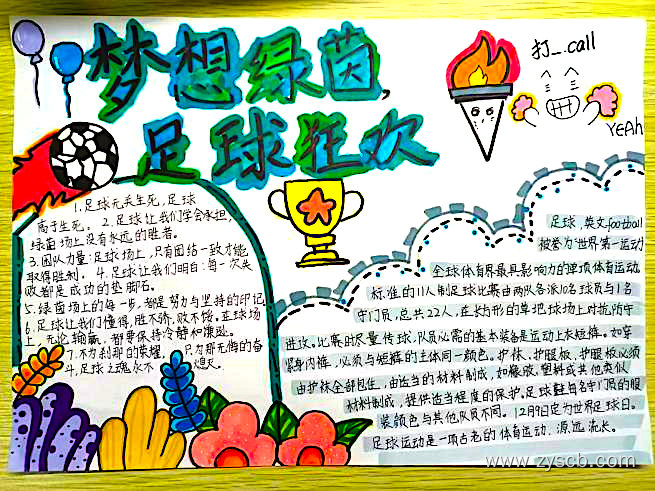 梦想绿茵,
足球狂欢
打_.call
YEAh
1.足球无关生死,足球
高于生死。2.足球让我们学会永担,
绿茵场上没有永远的胜者。
3.团队力量:足球场上,只有团结一致才能
取得胜利。4.足球让我们明白:每一次失
败都是成功的垫脚石。
5.绿茵场上的每一步,都是努力与坚持的印记
6.足球让我们懂得,胜不骄,败不馁。在球场
上,无论输赢,都要保持冷静和谦逊。
7.不为刹那的荣耀,只为那无悔的奋
斗,足球之魂永不熄灭。
足球,英文football
被誉为"世界第一运动
全球体育界最具影响力的单项体育运动。
标准的11人制足球比赛由两队各派10名球员与1名
守门员,总共22人,在长方形的草地球场上对抗,防守
进攻。比赛时尽量传球,队员必需的基本装备是运动上衣短裤。如穿
紧身内裤,必须与短裤的主体同一颜色。护袜、护腿板,护腿板必须
由护袜全部包住,由适当的材料制成,如橡胶,塑料或其他类似
材料制成,提供适当程度的保护。足球鞋与名守门员的服
装颜色与其他队员不同。12月9日定为世界足球日。
足球运动是一项古老的体育运动,源远流长。
www.zyscb.com